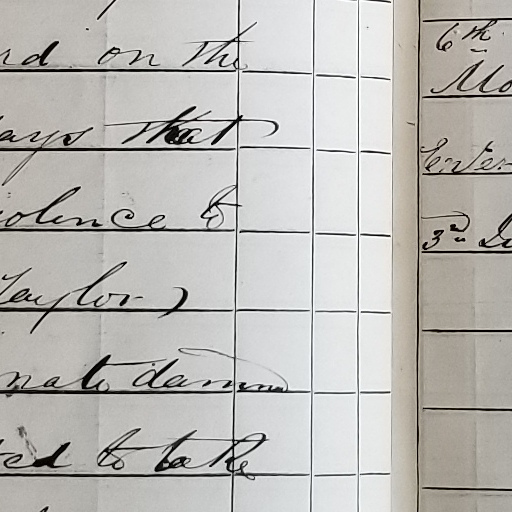 rd on the
ays that
iolence to
Taylor)
nate damm
ted to take
6th
Mo
Even
3rd In